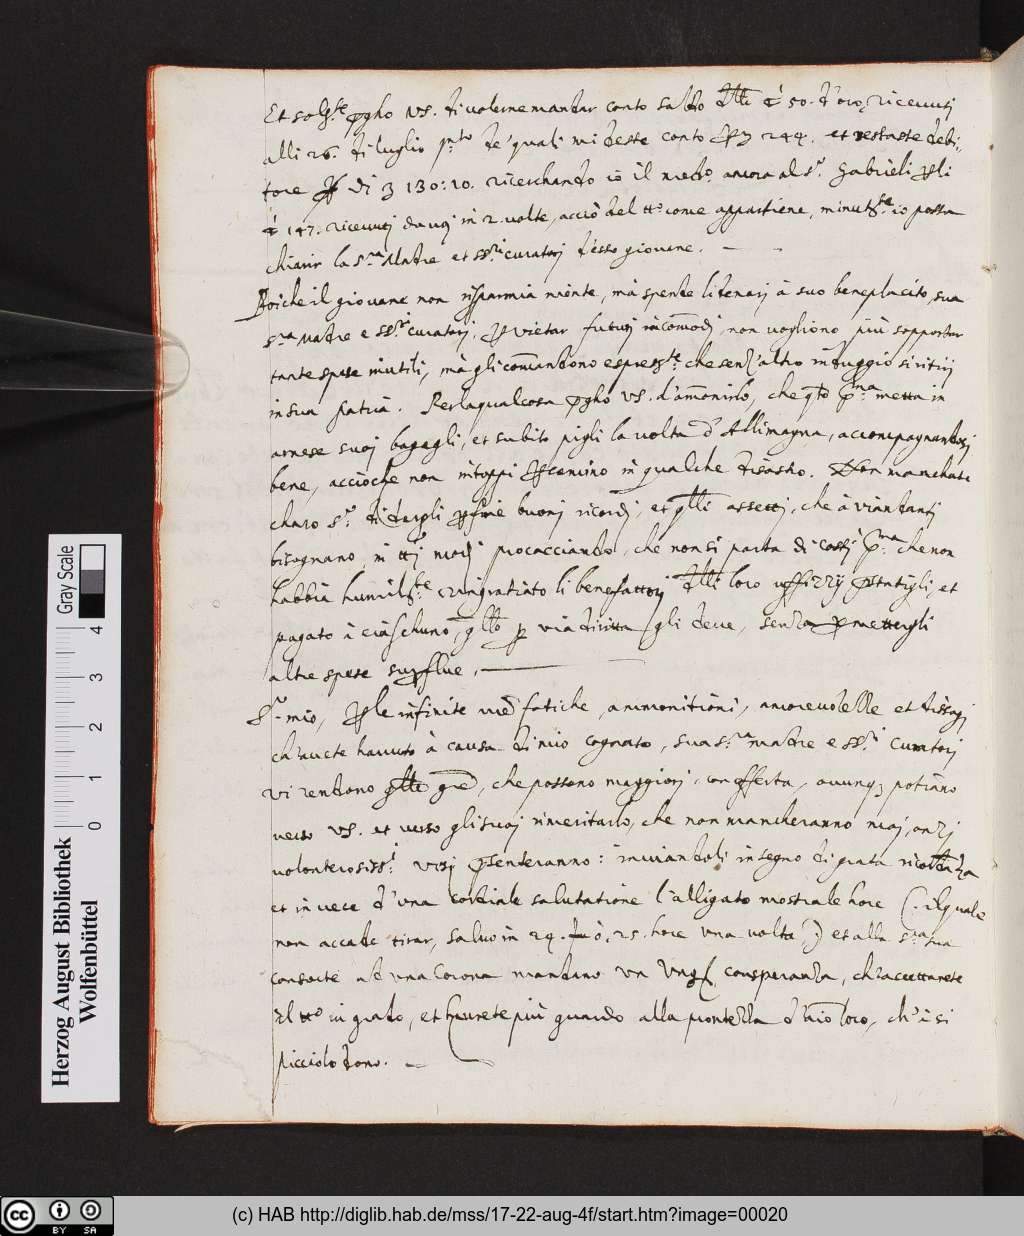 Et solᵗᵉ pgho VS. di volerne mandar conto saldo delli 50. d'oro, ricevuti
alli 26. di luglio pᵐᵗᵒ de' quali mi deste conto 244. et restaste debi,,
tore di 3 130:10. ricerchando io il medᵒ ancora al Sʳ. Gabrieli
147. ricevuti da voi in 2. volte, acciò del ttᵒ come appartiene, minutᵗᵉ io possa
chiarir la Sʳᵃ Madre et SSʳⁱ curatorj d'esso giovane.
Poiche il giovane non risparmia niente, mà spende li denarj à suo beneplacito, sua
Sʳᵃ Madre e SSʳⁱ curatorj, p vietar futurj incom̄odj, non vogliono più sopportar
tante spese inutili, mà gli com̄andono espressᵗᵉ che senz'altro indugio si ritirj
in sua patria. Perlaqualcosa pgho VS. d'am̄onirlo, che pᵐᵃ metta in
arnese suoj bagagli, et subito pigli la volta d'Allimagna, accompagnandosj
bene, accioche non intoppi p camino in qualche disastro. Non manchate
charo Sʳ. di dergli buonj ricordj, et assettj, che à viandantj
bisognano in ttj modj procacciando, che non si parta di costj pᵐᵃ che non
habbia humilᵗᵉ ringratiato li benefattorj delli loro uffizzij et
pagato à ciaschuno, p via diritta gli deve, senza pmettergli
altre spese supflue.
Sʳ. mio, p le infinite fatiche, ammonitioni, amorevolezze et disagj
ch'avete havuto à causa di mio cognato, sua Sʳᵃ madre e SSʳⁱ Curatorj
vi rendono che possono maggiorj, con offerta, ovunq; potrano
verso VS. et verso gli suoj rimeritarlo, che non mancheranno maj, anzj
volonterosissⁱ. visj psenteranno: inviandoli in segno di grata
et in vece d'una cordiale salutatione l'alligato mostrale hore (. il quale
non accade tirar, salvo in 24. ò, 25. hore una volta :) et alla Sʳᵃ sua
consorte ad una Corona mandano un con speranza, ch'accettarete
il ttᵒ in grado, et haurete più guardo alla prontezza d'ai͞o loro, ch'à sì
picciolo dono.
Gray Scale
0 1 2 3 4
Herzog August Bibliothek
Wolfenbüttel
cc BY SA
(c) HAB http://diglib.hab.de/mss/17-22-aug-4f/start.htm?image=00020